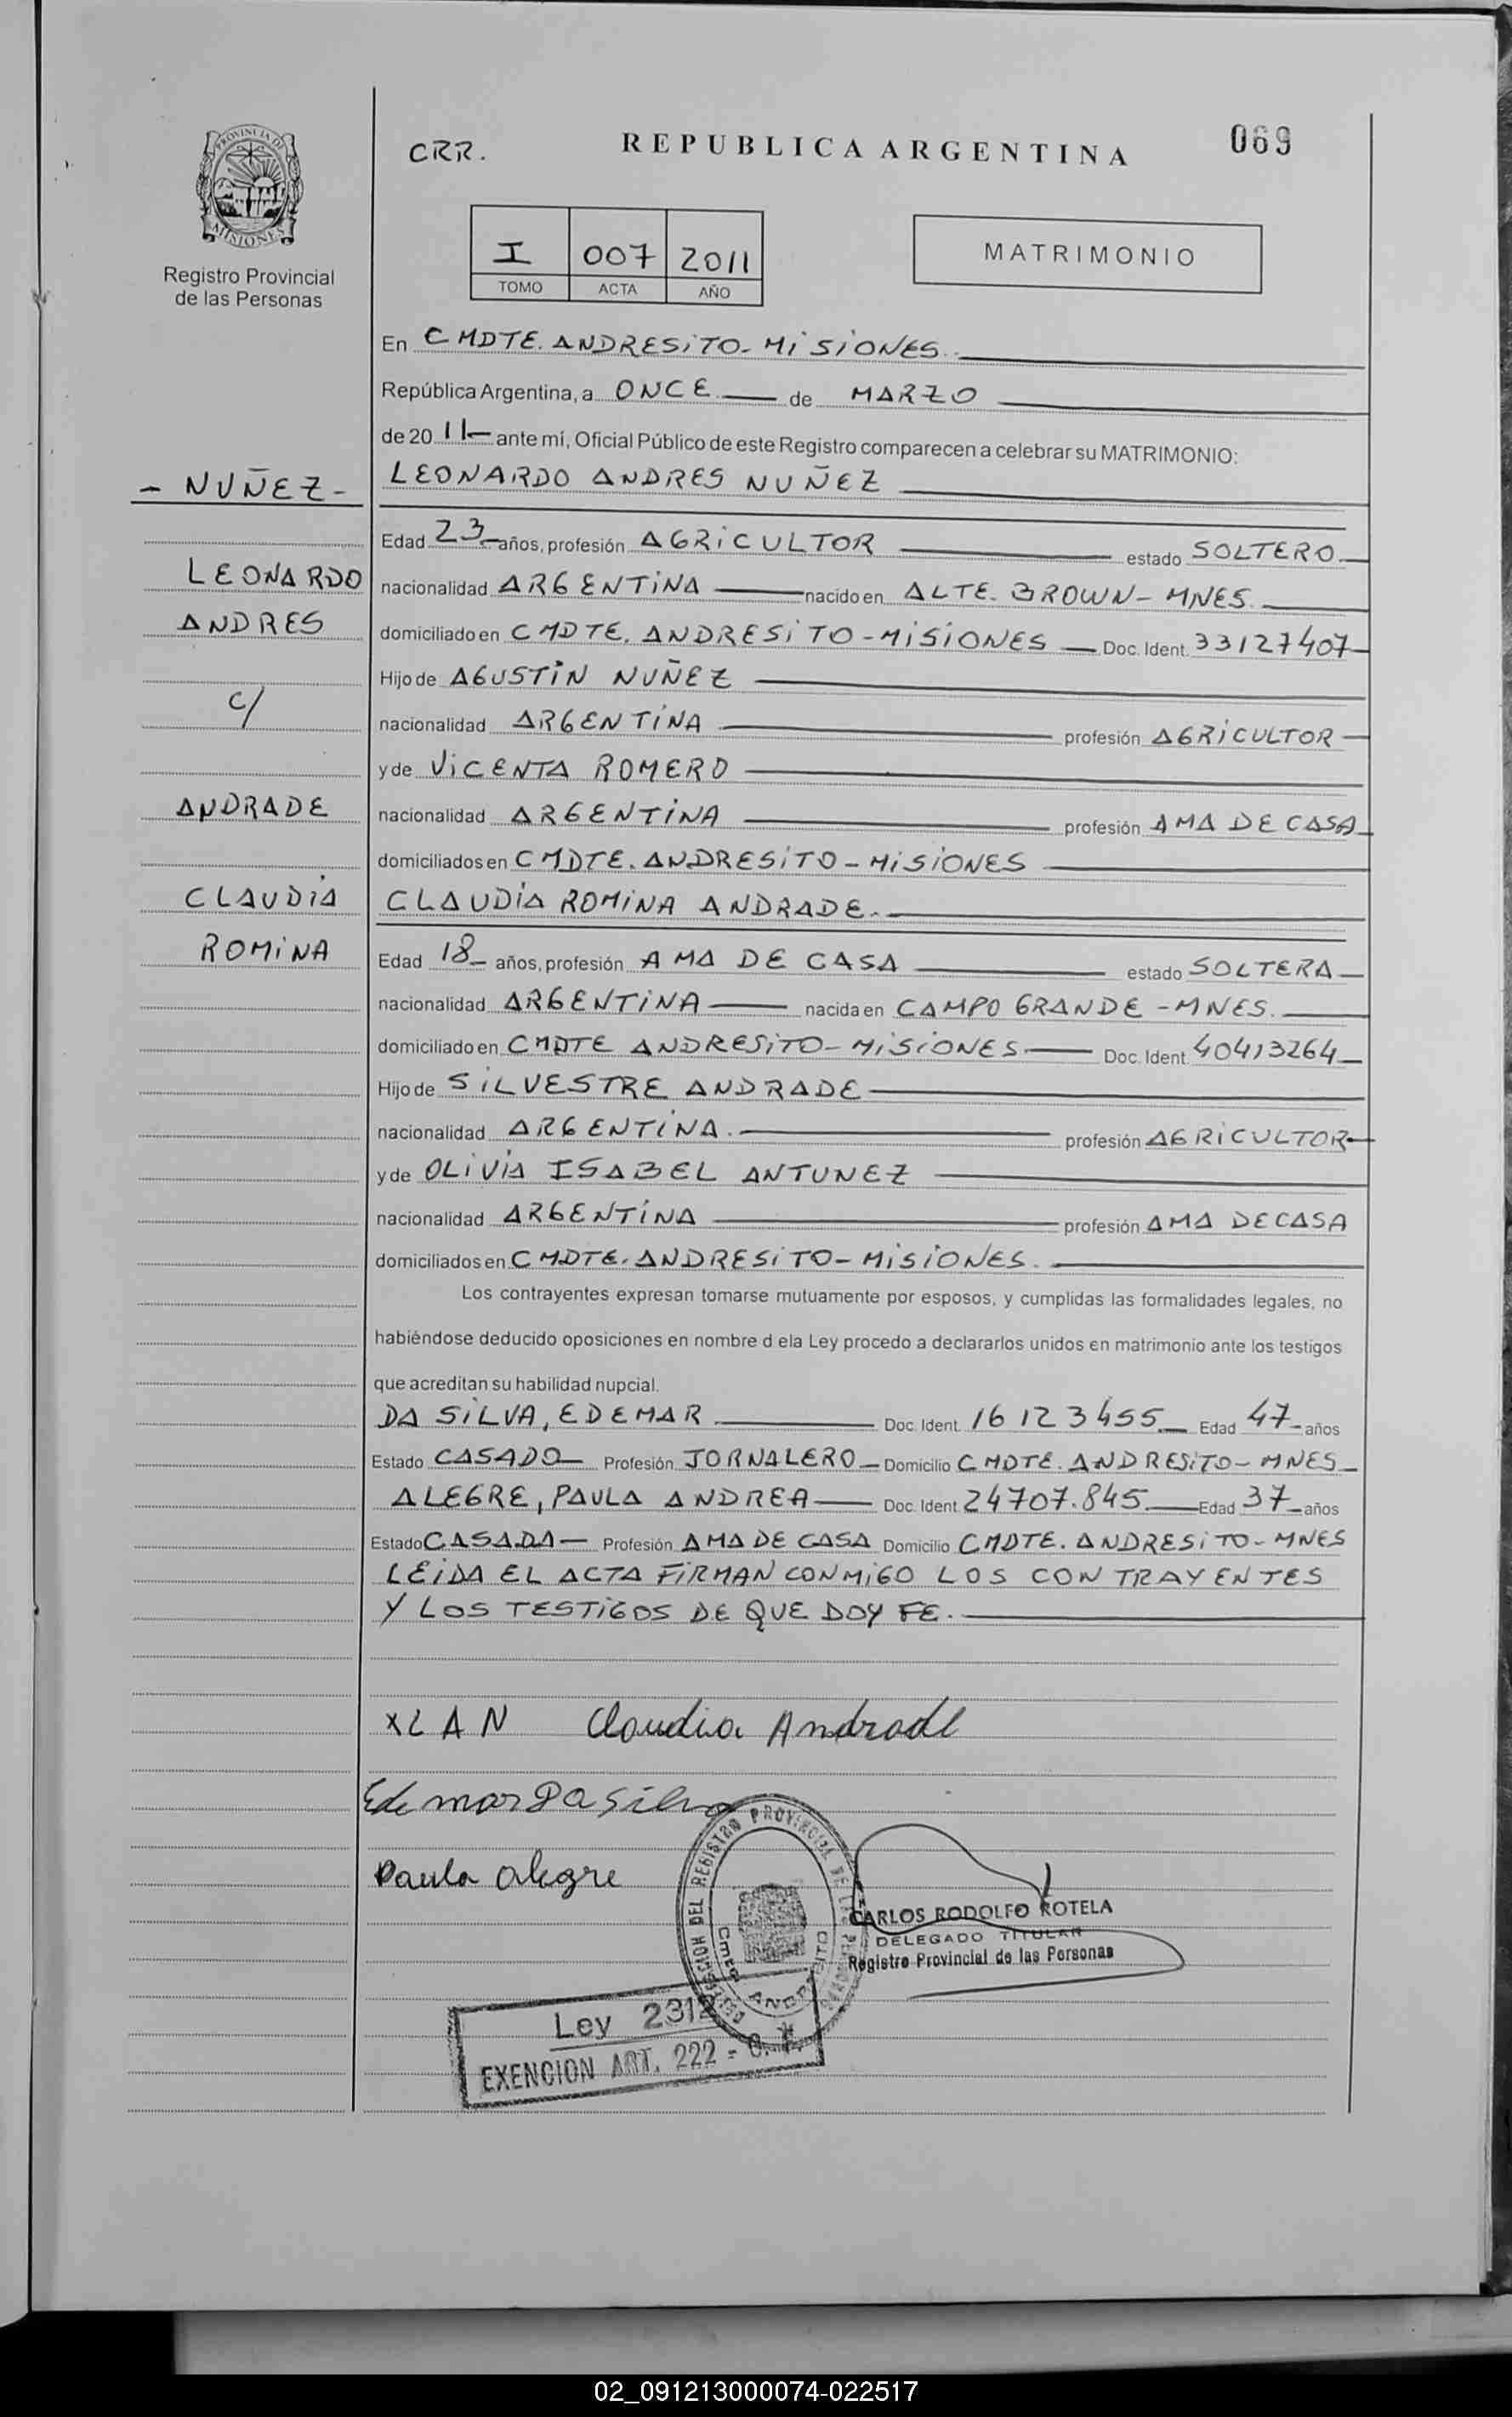 PROVINCIA DE
MISIONES
Registro Provincial
de las Personas
CRR.
REPUBLICA ARGENTINA
069
I 007 2011
TOMO ACTA AÑO
MATRIMONIO
En CMDTE. ANDRESITO - MISIONES.
República Argentina, a ONCE de MARZO
de 20 11 ante mí, Oficial Público de este Registro comparecen a celebrar su MATRIMONIO:
- NUÑEZ -
LEONARDO ANDRES NUÑEZ
Edad 23 años, profesión AGRICULTOR estado SOLTERO
LEONARDO
nacionalidad ARGENTINA nacido en ALTE. BROWN - MNES.
ANDRES
domiciliado en CMDTE. ANDRESITO - MISIONES Doc. Ident. 33127407
Hijo de AGUSTIN NUÑEZ
C/
nacionalidad ARGENTINA profesión AGRICULTOR
y de VICENTA ROMERO
ANDRADE
nacionalidad ARGENTINA profesión AMA DE CASA
domiciliados en CMDTE. ANDRESITO - MISIONES
CLAUDIA
CLAUDIA ROMINA ANDRADE.
ROMINA
Edad 18 años, profesión AMA DE CASA estado SOLTERA
nacionalidad ARGENTINA nacida en CAMPO GRANDE - MNES.
domiciliado en CMDTE ANDRESITO - MISIONES Doc. Ident. 40413264
Hijo de SILVESTRE ANDRADE
nacionalidad ARGENTINA. profesión AGRICULTOR
y de OLIVIA ISABEL ANTUNEZ
nacionalidad ARGENTINA profesión AMA DE CASA
domiciliados en CMDTE. ANDRESITO - MISIONES.
Los contrayentes expresan tomarse mutuamente por esposos, y cumplidas las formalidades legales, no
habiéndose deducido oposiciones en nombre d ela Ley procedo a declararlos unidos en matrimonio ante los testigos
que acreditan su habilidad nupcial.
DA SILVA, EDEMAR Doc. Ident. 16123455 Edad 47 años
Estado CASADO Profesión JORNALERO Domicilio CMDTE. ANDRESITO - MNES
ALEGRE, PAULA ANDREA Doc. Ident. 24707.845 Edad 37 años
Estado CASADA Profesión AMA DE CASA Domicilio CMDTE. ANDRESITO - MNES
LEIDA EL ACTA FIRMAN CONMIGO LOS CONTRAYENTES
Y LOS TESTIGOS DE QUE DOY FE.
XLAN Claudia Andrade
Edemar Da Silva
Paula Alegre
DEL REGISTRO PROVINCIAL DE
CMTE ANDRESITO
CARLOS RODOLFO ROTELA
DELEGADO TITULAR
Registro Provincial de las Personas
Ley 2312
EXENCION ART. 222 -
02_091213000074-022517